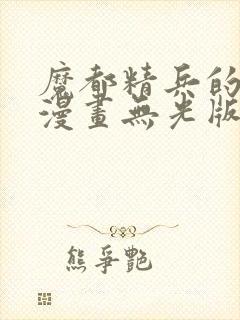 魔都精兵的
漫畫無光版
熊爭艷